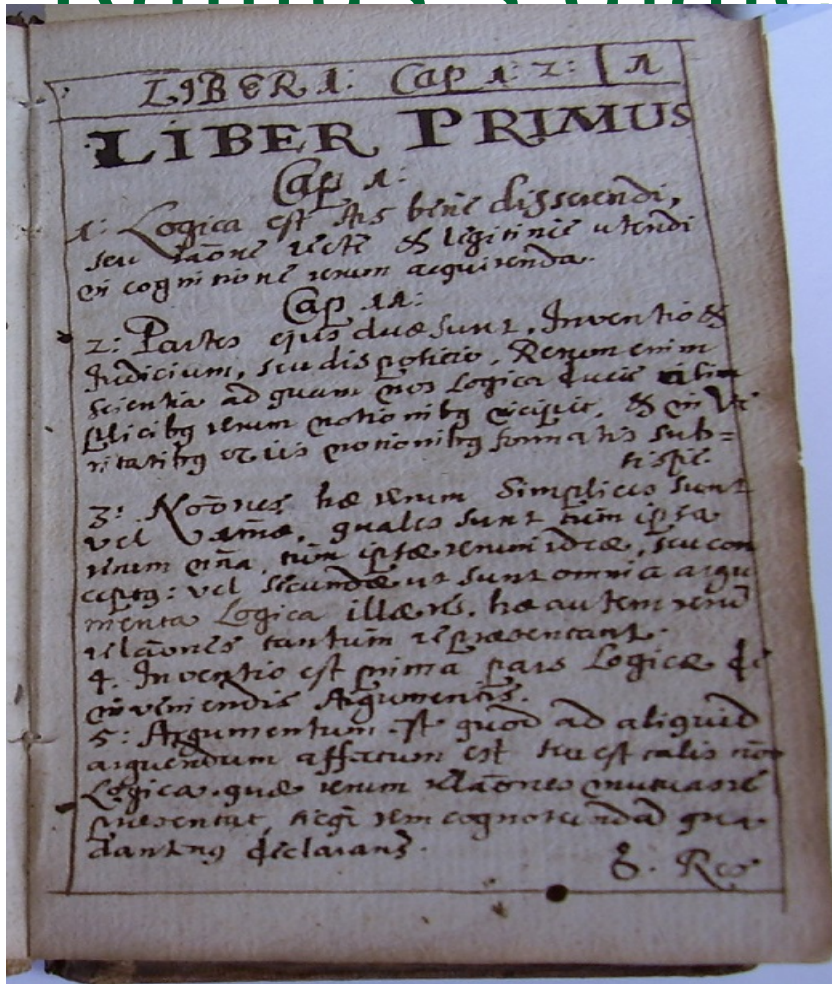 LIBER 1: Cap 1: 2: 1
LIBER PRIMUS
Cap 1:
1: Logica est Ars bene disserendi,
seu raōne recte & legitime utendi
in cognitione rerum acquirenda.
Cap 11:
2: Partes ejus duæ sunt, Inventio &
Judicium, seu dispositio. Rerum enim
scientia ad quam nos Logica ducit
plicibq rerum notionibq incipit, & in Ve
ritatibq ex iis notionibq formatis sub=
sistit.
3: Notōnes hæ rerum Simplices sunt
vel primæ, quales sunt tum ipsa
rerum noīa, tum ipsæ rerum ideæ, seu con
ceptq: vel secundæ ut sunt omnia argu
menta Logica illæ res, hæ autem rerū
relaōnes tantum repræsentant.
4. Inventio est prima pars Logicæ de
inveniendis Argumentis.
5: Argumentum est quod ad aliquid
arguendum affectum est seu est talis
Logica, quæ rerum relaōnes mutuas re
præsentat, rem cognoscendā
declarans.